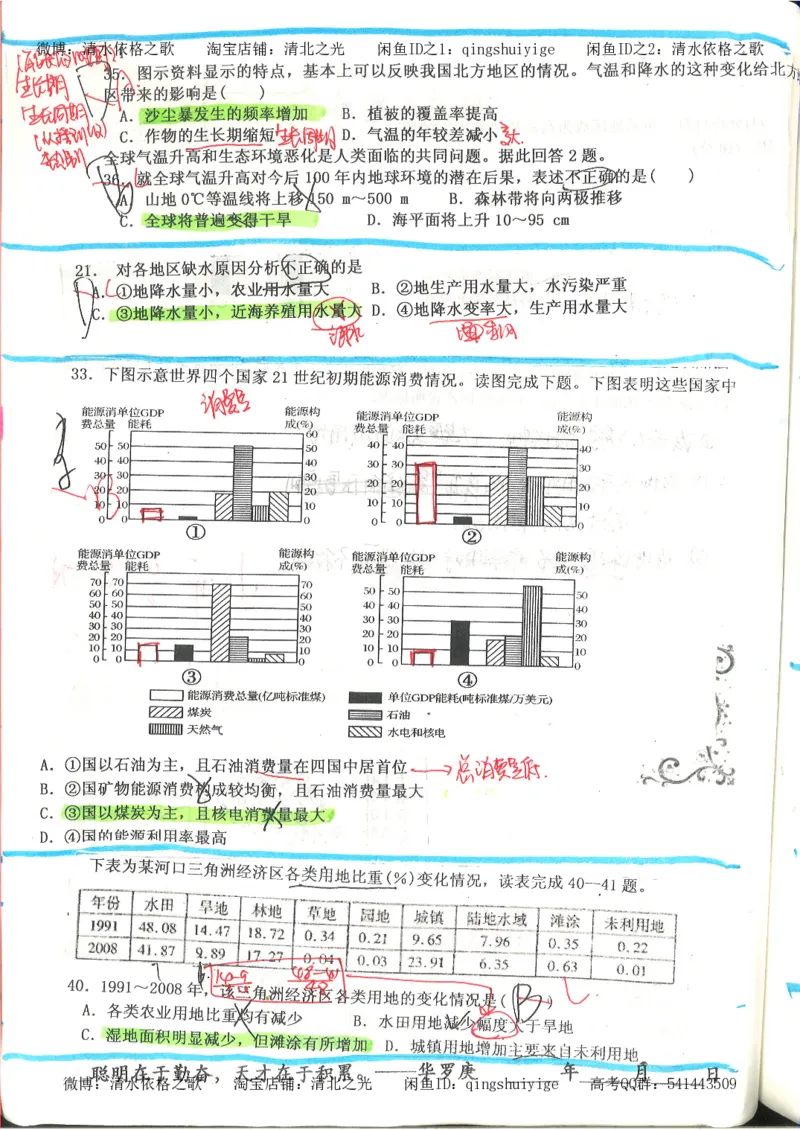 微博：清水依格之歌 淘宝店铺：清北之光 闲鱼ID之1：qingshuiyige 闲鱼ID之2：清水依格之歌
35. 图示资料显示的特点，基本上可以反映我国北方地区的情况。气温和降水的这种变化给北方
生长期
区带来的影响是( )
A. 沙尘暴发生的频率增加 B. 植被的覆盖率提高
生长周期
C. 作物的生长期缩短 生长周期 D. 气温的年较差减小 大
全球气温升高和生态环境恶化是人类面临的共同问题。据此回答2题。
36. 就全球气温升高对今后100年内地球环境的潜在后果，表述不正确的是( )
A. 山地0℃等温线将上移150 m～500 m B. 森林带将向两极推移
C. 全球将普遍变得干旱 D. 海平面将上升10～95 cm
21. 对各地区缺水原因分析不正确的是
A. ①地降水量小，农业用水量大 B. ②地生产用水量大，水污染严重
C. ③地降水量小，近海养殖用水量大 D. ④地降水变率大，生产用水量大
33. 下图示意世界四个国家21世纪初期能源消费情况。读图完成下题。下图表明这些国家中
消费量
能源消费总量 单位GDP能耗 能源构成(%)
50 50 60
40 40 50
30 30 40
20 20 30
10 10 20
0 0 10
0
①
能源消费总量 单位GDP能耗 能源构成(%)
40 40 40
30 30 30
20 20 20
10 10 10
0 0 0
②
能源消费总量 单位GDP能耗 能源构成(%)
70 70 70
60 60 60
50 50 50
40 40 40
30 30 30
20 20 20
10 10 10
0 0 0
③
能源消费总量 单位GDP能耗 能源构成(%)
50 50 50
40 40 40
30 30 30
20 20 20
10 10 10
0 0 0
④
能源消费总量(亿吨标准煤) 单位GDP能耗(吨标准煤/万美元)
煤炭 石油
天然气 水电和核电
A. ①国以石油为主，且石油消费量在四国中居首位 总消费量低.
B. ②国矿物能源消费构成较均衡，且石油消费量最大
C. ③国以煤炭为主，且核电消费量最大
D. ④国的能源利用率最高
下表为某河口三角洲经济区各类用地比重(%)变化情况，读表完成40--41题。
年份 水田 旱地 林地 草地 园地 城镇 陆地水域 滩涂 未利用地
1991 48.08 14.47 18.72 0.34 0.21 9.65 7.96 0.35 0.22
2008 41.87 9.89 17.27 0.04 0.03 23.91 6.35 0.63 0.01
40. 1991～2008年，该三角洲经济区各类用地的变化情况是( B )
A. 各类农业用地比重均有减少 B. 水田用地减少幅度大于旱地
C. 湿地面积明显减少，但滩涂有所增加 D. 城镇用地增加主要来自未利用地
聪明在于勤奋，天才在于积累。——华罗庚 年 月 日
微博：清水依格之歌 淘宝店铺：清北之光 闲鱼ID：qingshuiyige 高考QQ群：541443509